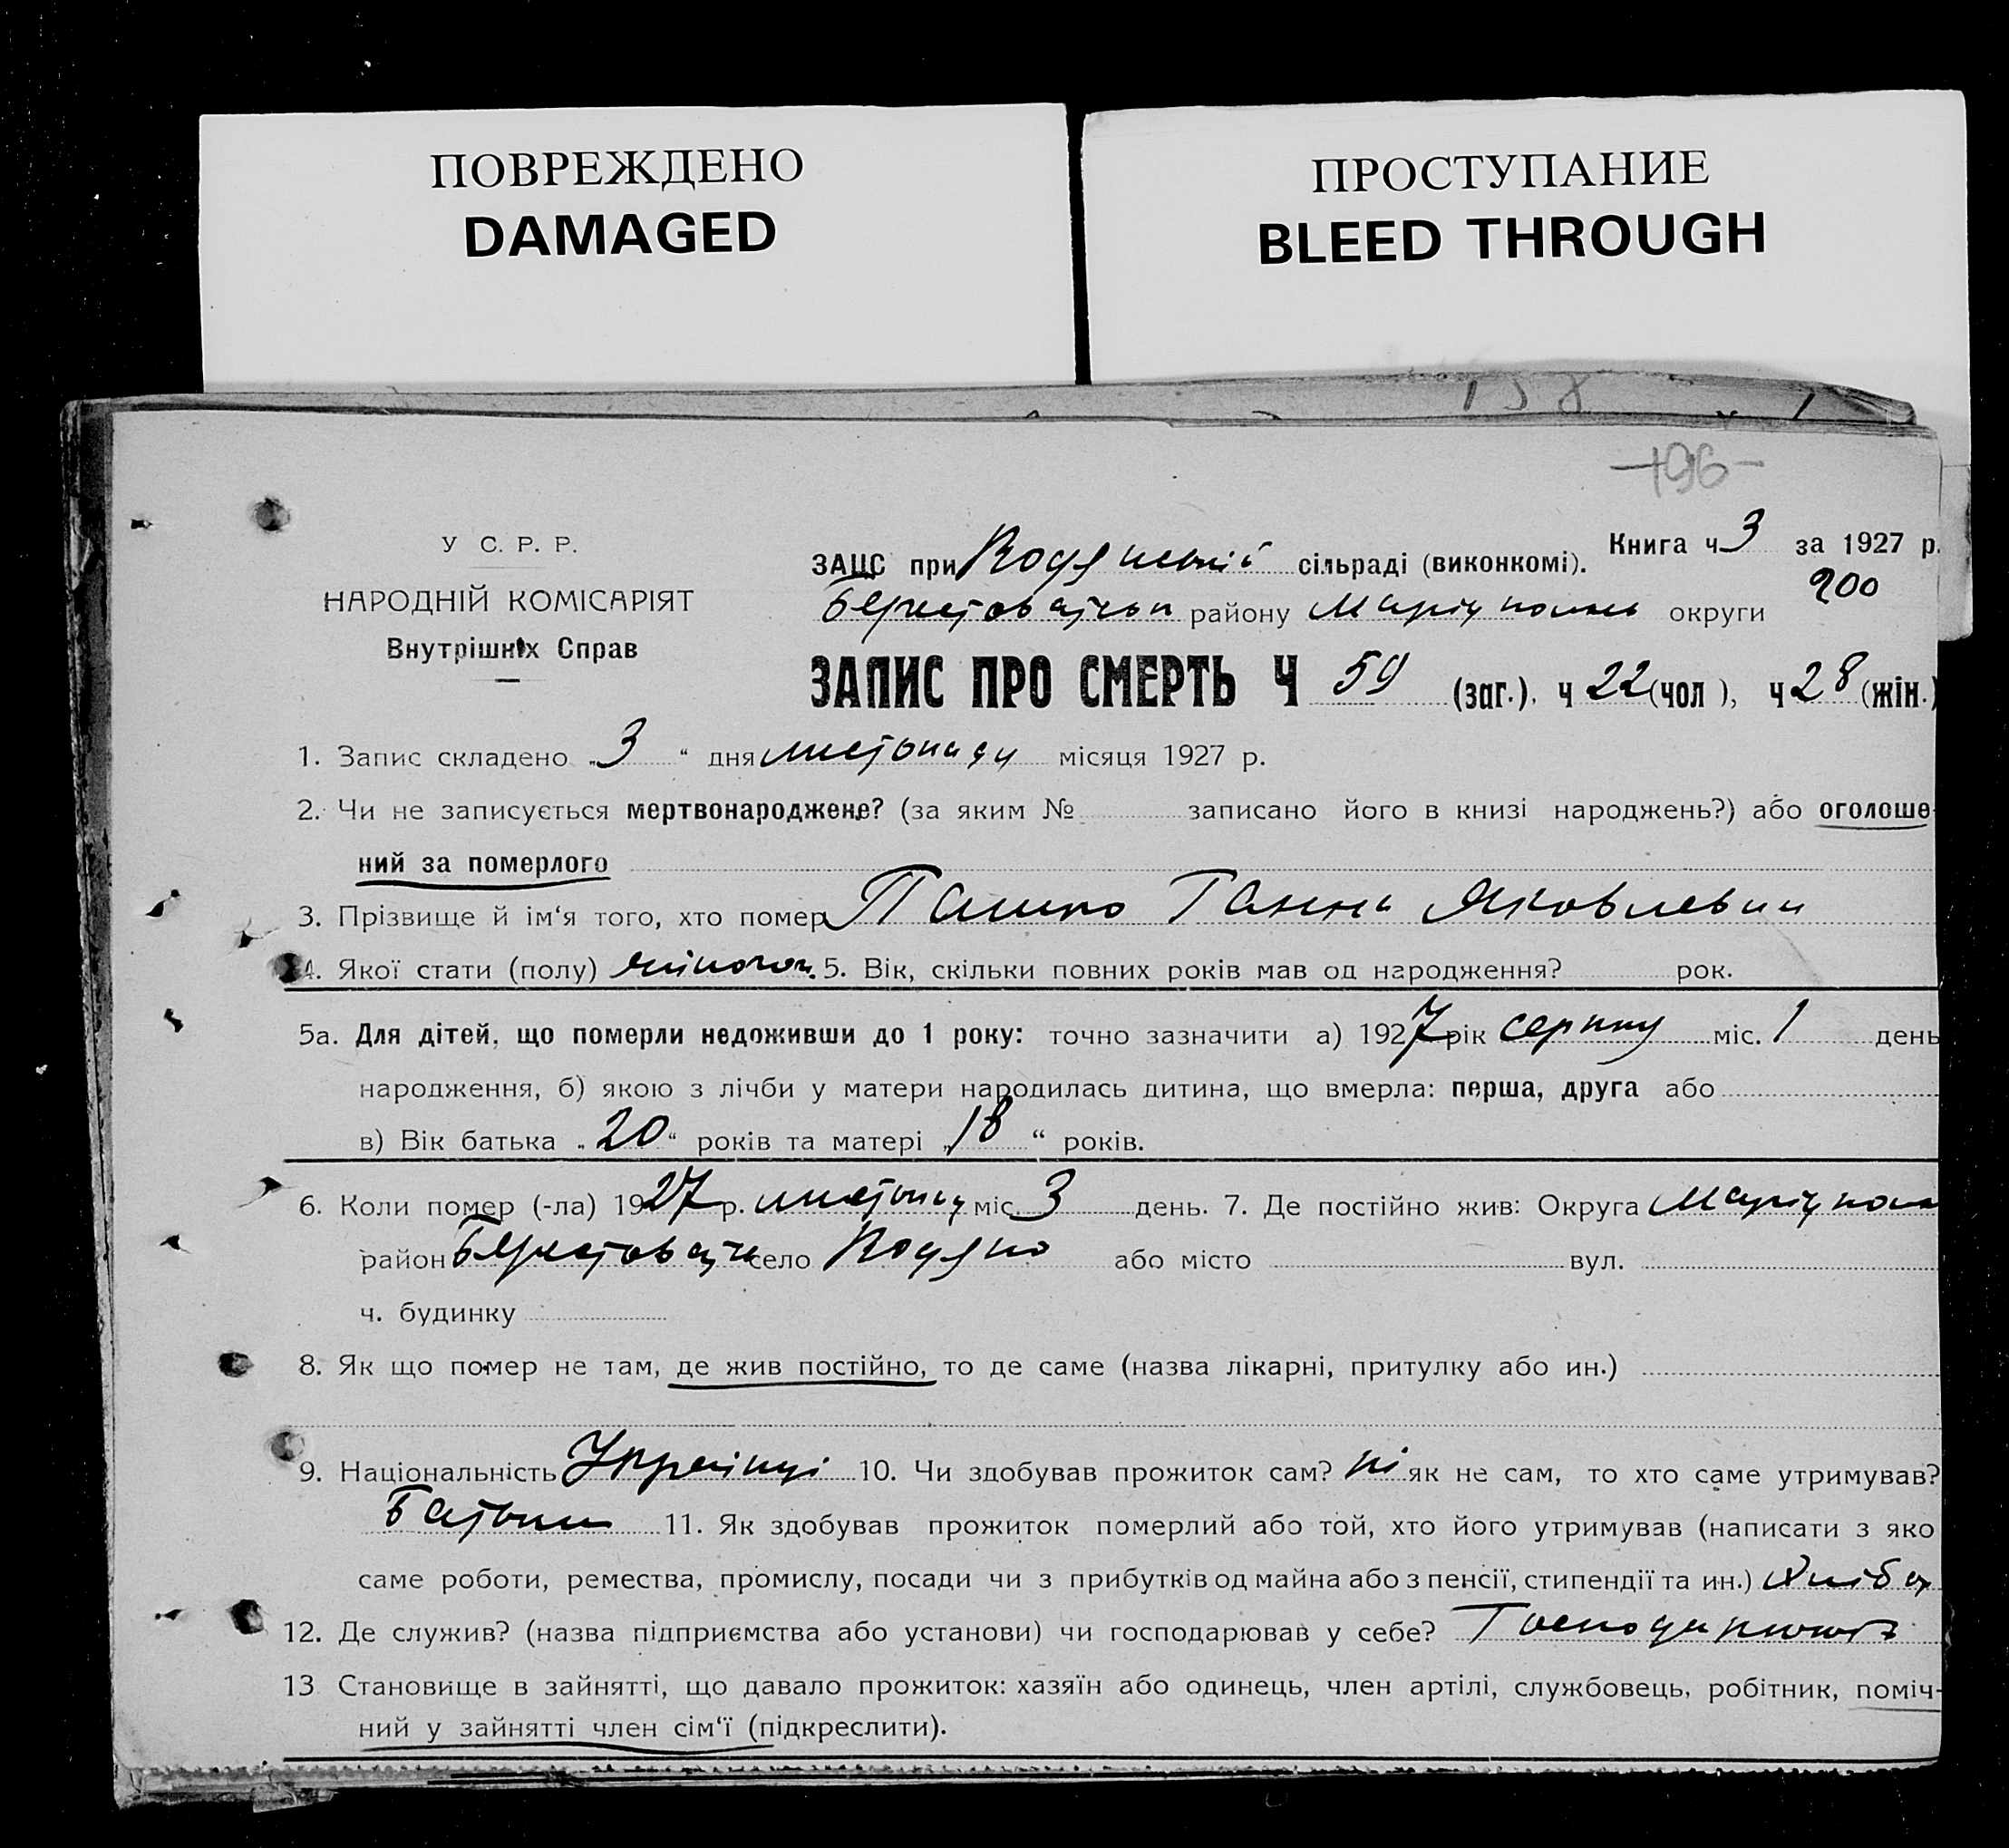 ПОВРЕЖДЕНО
DAMAGED
ПРОСТУПАНИЕ
BLEED THROUGH
158
196
У С. Р. Р.
НАРОДНІЙ КОМІСАРІЯТ
Внутрішніх Справ
Книга ч 3 за 1927 р.
ЗАЦС при сільраді (виконкомі).
200
району округи
ЗАПИС ПРО СМЕРТЬ Ч 59 (заг.), ч 22 (чол), ч 28 (жін.)
1. Запис складено „3“ дня листопада місяця 1927 р.
2. Чи не записується мертвонароджене? (за яким № записано його в книзі народжень?) або оголоше-
ний за померлого
3. Прізвище й ім'я того, хто помер Ганна Яковлевна
4. Якої стати (полу) 5. Вік, скільки повних років мав од народження? рок.
5а. Для дітей, що померли недоживши до 1 року: точно зазначити а) 1927 рік серпня міс. 1 день
народження, б) якою з лічби у матери народилась дитина, що вмерла: перша, друга або
в) Вік батька „20“ років та матері „18“ років.
6. Коли помер (-ла) 1927 р. листопад міс. 3 день. 7. Де постійно жив: Округа Маріупол
район село Водяно або місто вул.
ч. будинку
8. Як що помер не там, де жив постійно, то де саме (назва лікарні, притулку або ин.)
9. Національність Українці 10. Чи здобував прожиток сам? ні як не сам, то хто саме утримував?
Батьки 11. Як здобував прожиток померлий або той, хто його утримував (написати з яко
саме роботи, ремества, промислу, посади чи з прибутків од майна або з пенсії, стипендії та ин.)
12. Де служив? (назва підприємства або установи) чи господарював у себе?
13 Становище в зайнятті, що давало прожиток: хазяїн або одинець, член артілі, службовець, робітник, поміч-
ний у зайнятті член сім'ї (підкреслити).